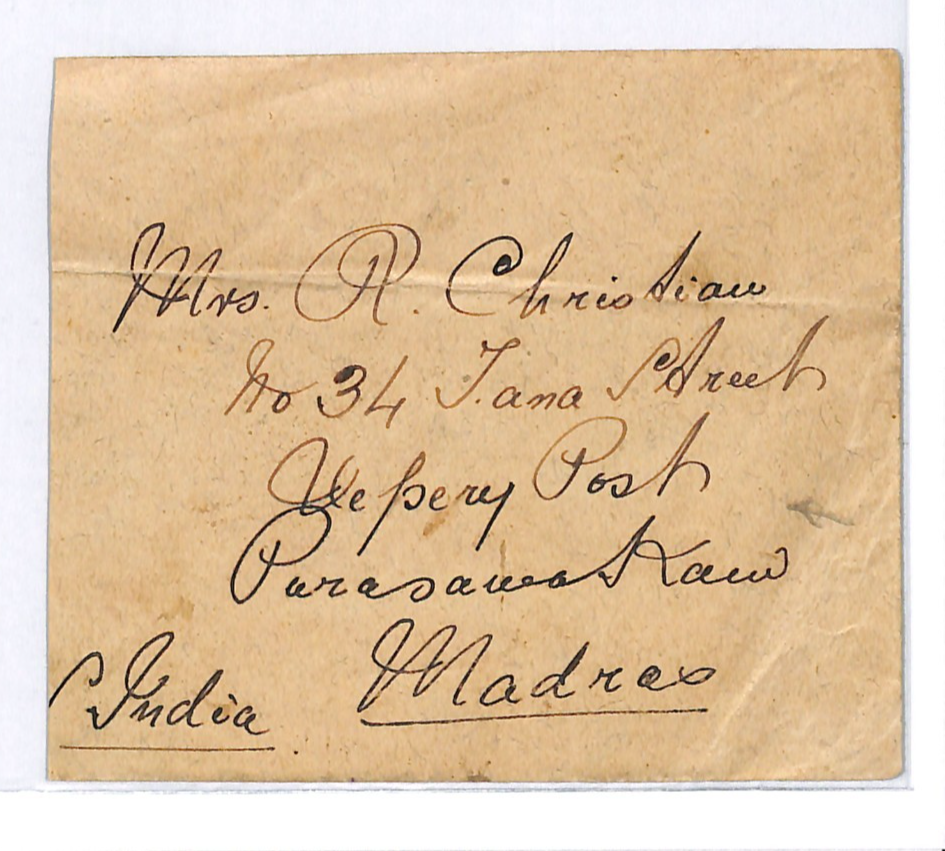 Mrs. R. Christian
No 34 Tana Street
Vepery Post
Purasawakam
Madras
S. India